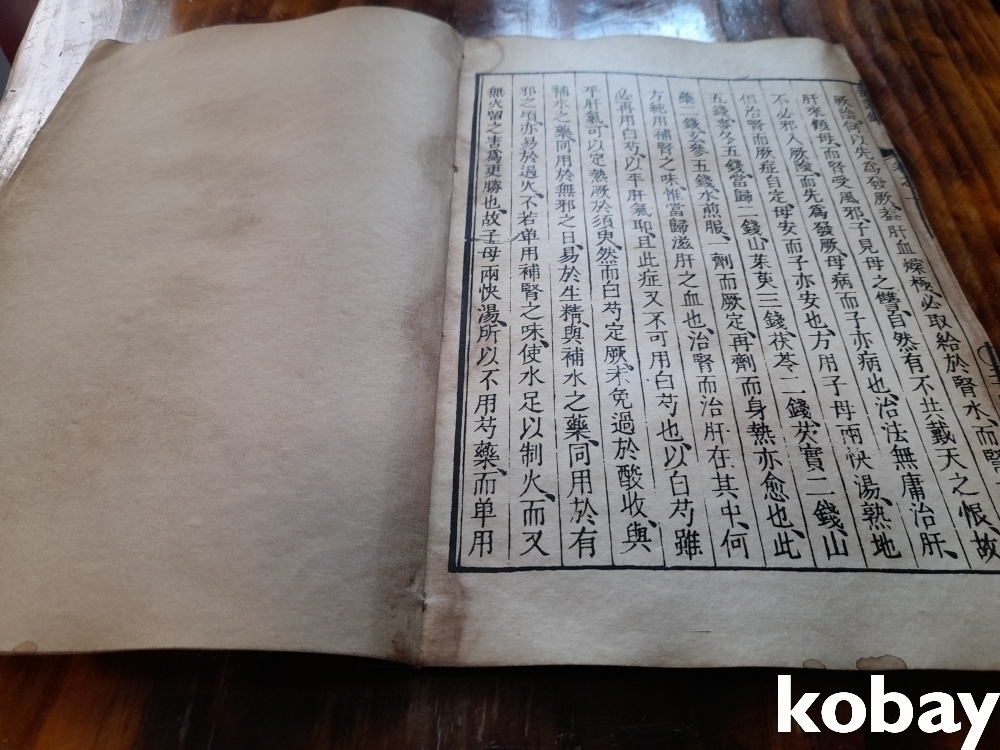 厥陰所以先為發厥蓋肝血燥極必取給於腎水、而腎
肝來傾母、而腎受風邪、子見母之讐、自然有不共戴天之恨、故
不必邪入厥陰、而先為發厥、母病而子亦病也、治法無庸治肝、
但治腎而厥症自定、母安而子亦安也、方用子母兩快湯、熟地
五錢麥冬五錢當歸二錢山茱萸三錢、茯苓二錢、芡實二錢、山
藥二錢玄參五錢水煎服、一劑而厥定、再劑而身熱亦愈也、此
方純用補腎之味、惟當歸滋肝之血也、治腎而治肝在其中、何
必再用白芍、以平肝氣耶、且此症又不可用白芍也、以白芍雖
平肝氣可以定熱厥於須臾、然而白芍定厥、未免過於酸收、與
補水之藥、同用於無邪之日、易於生精、與補水之藥、同用於有
邪之頃亦易於遏火、不若單用補腎之味、使水足以制火、而又
無火留之害為更勝也、故子母兩快湯、所以不用芍藥、而单用
kobay